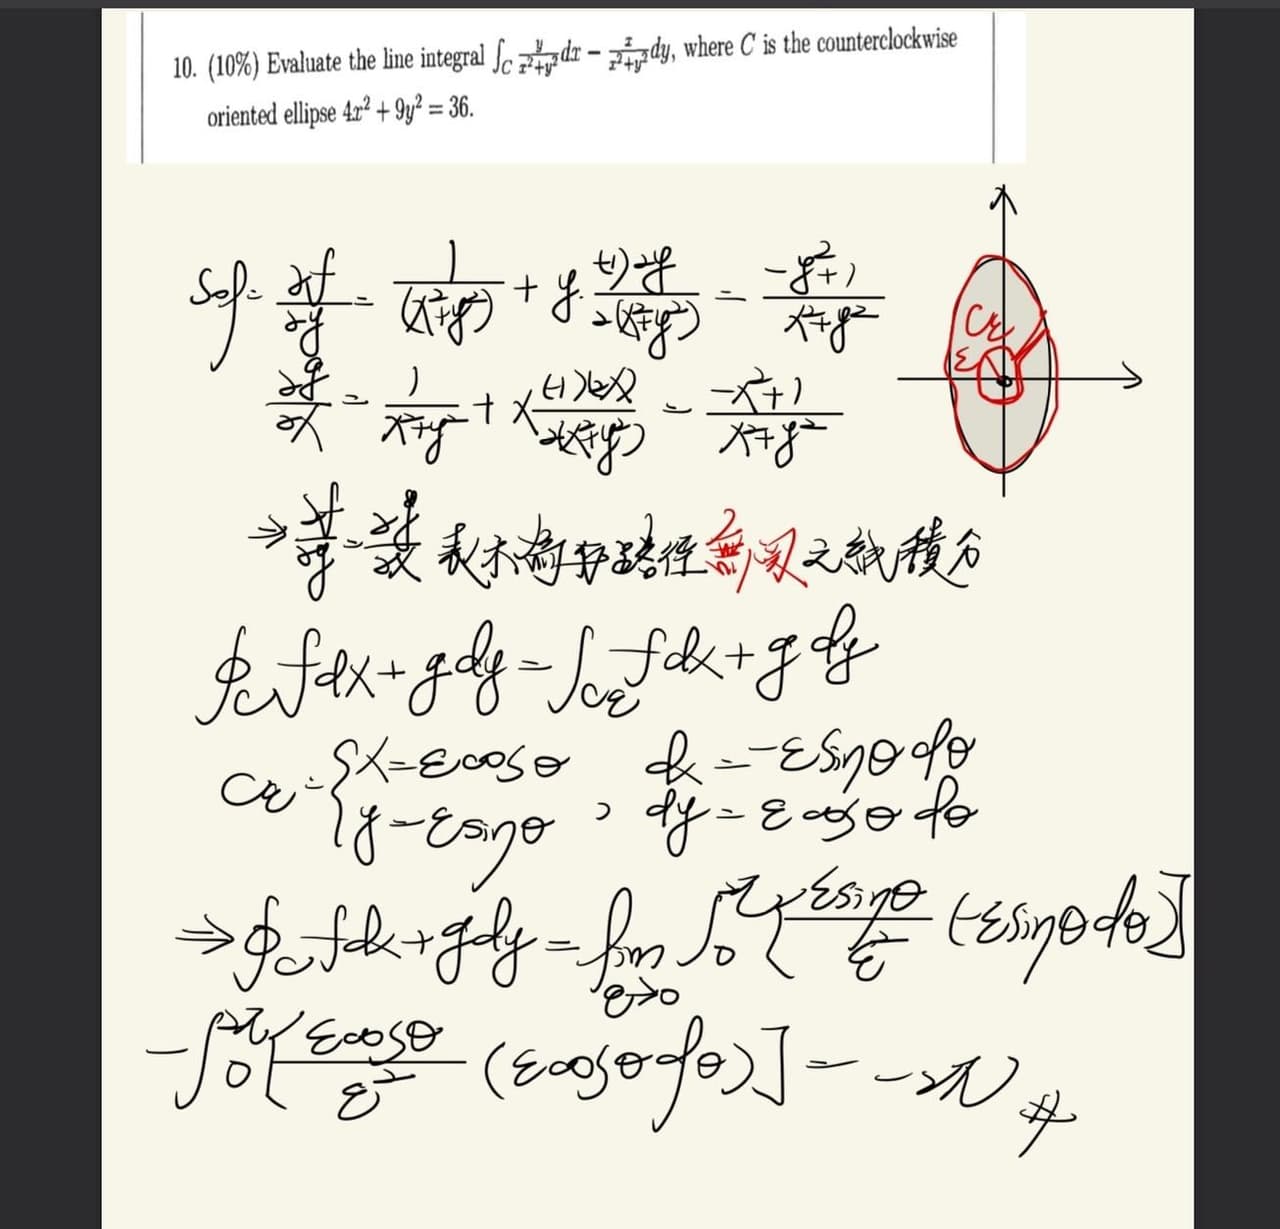 10. (10%) Evaluate the line integral ∫_C y/(x²+y²) dx − x/(x²+y²) dy, where C is the counterclockwise
oriented ellipse 4x² + 9y² = 36.
Sol: ∂f/∂y = 1/(x²+y²) + y·(-1)2y/2(x²+y²) = (-y²+1)/(x²+y²)
Cε
ε
∂g/∂x = 1/(x²+y²) + x(-1)(2x)/2(x²+y²) = (-x²+1)/(x²+y²)
⇒ ∂f/∂y = ∂g/∂x 表示為與路徑無關之線積分
∮_C fdx+gdy = ∫_Cε fdx+gdy
Cε: { x=εcosθ dx=-εsinθdθ
y=εsinθ , dy=εcosθdθ
⇒ ∮_C fdx+gdy = lim ε→0 ∫₀^2π [ εsinθ/ε² (-εsinθdθ)]
-∫₀^2π [ εcosθ/ε² (εcosθdθ)] = -2π #